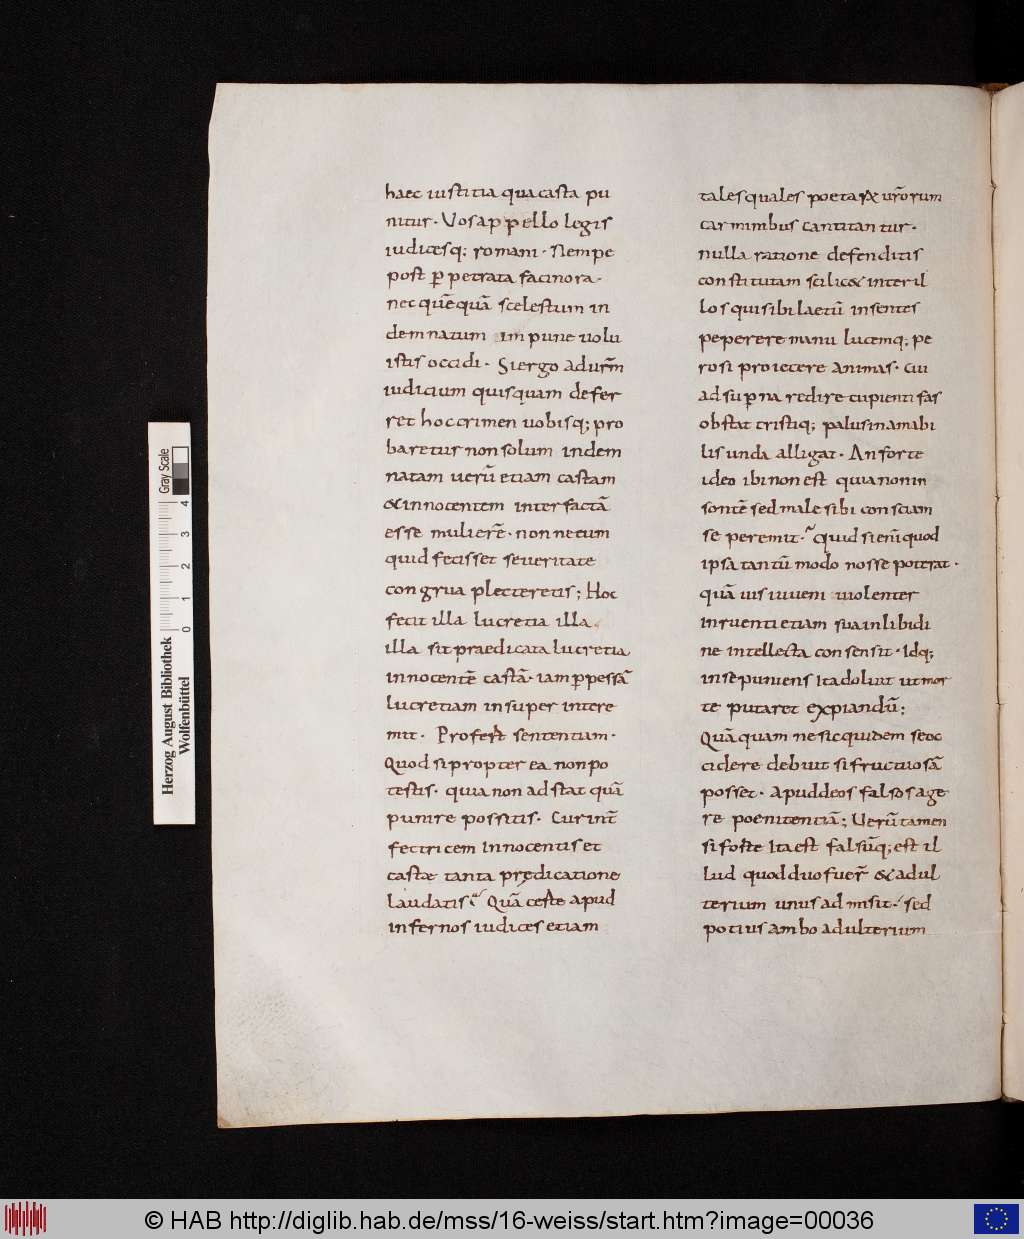 haec iustitia qua casta pu
nitur · Vos appello legis
iudicesq; romani · Nempe
post p̱petrata facinora ·
nec quēquā scelestum in
demnatum impune uolu
istis occidi · Si ergo ad ur̄m
iudicium quisquam defer
ret hoc crimen uobisq; pro
baretur non solum indem
natam uerū etiam castam
& innocentem interfactā
esse mulierē · non ne eum
quid fecisset seueritate
congrua plecteretis; Hoc
fecit illa lucretia illa
illa sit praedicata lucretia
innocentē castā · iam p̱pessā
lucretiam insuper intere
mit · Proferte sententiam ·
Quod si propter ea non po
testis · quia non adstat quā
punire possitis · Cur int̄
fectricem innocentis et
castae tanta prędicatione
laudatis · Quā certe apud
infernos iudices etiam
tales quales poetar& ur̄orum
carminibus cantitantur ·
nulla ratione defenditis
constitutam scilic& inter il
los qui sibi laetū insentes
peperere manu lucemq; pe
rosi proiecere animas · Cui
ad sup̱na redire cupienti fas
obstat tristiq; palus inamabi
lis unda alligat · An forte
ideo ibi non est quia non in
sontē sed male sibi consciam
se peremit · quid si enī quod
ipsa tantū modo nosse poterat ·
quā uis iuueni uiolenter
inruenti etiam sua inlibidi
ne intellecta consensit · Idq;
in se puniens ita doluit ut mor
te putaret expiandū;
Quā quam ne sic quidem se oc
cidere debuit si fructuosā
posset · apud deos falsos age
re poenitentiā; Uerū tamen
si forte Ita est falsūq; est il
lud quod duo fuer̄ & adul
terium unus admisit · sed
potius ambo adulterium
Gray Scale
0 1 2 3 4
Herzog August Bibliothek
Wolfenbüttel
© HAB http://diglib.hab.de/mss/16-weiss/start.htm?image=00036